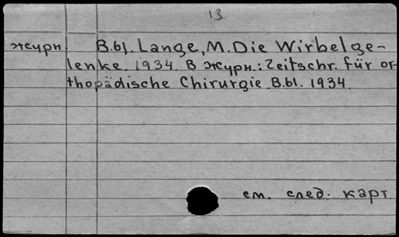 13
журн. B.bl. Lange, M. Die Wirbelge-
lenke. 1934. В журн.: Zeitschr. für or-
thopädische Chirurgie. B.bl. 1934.
см. след. карт.